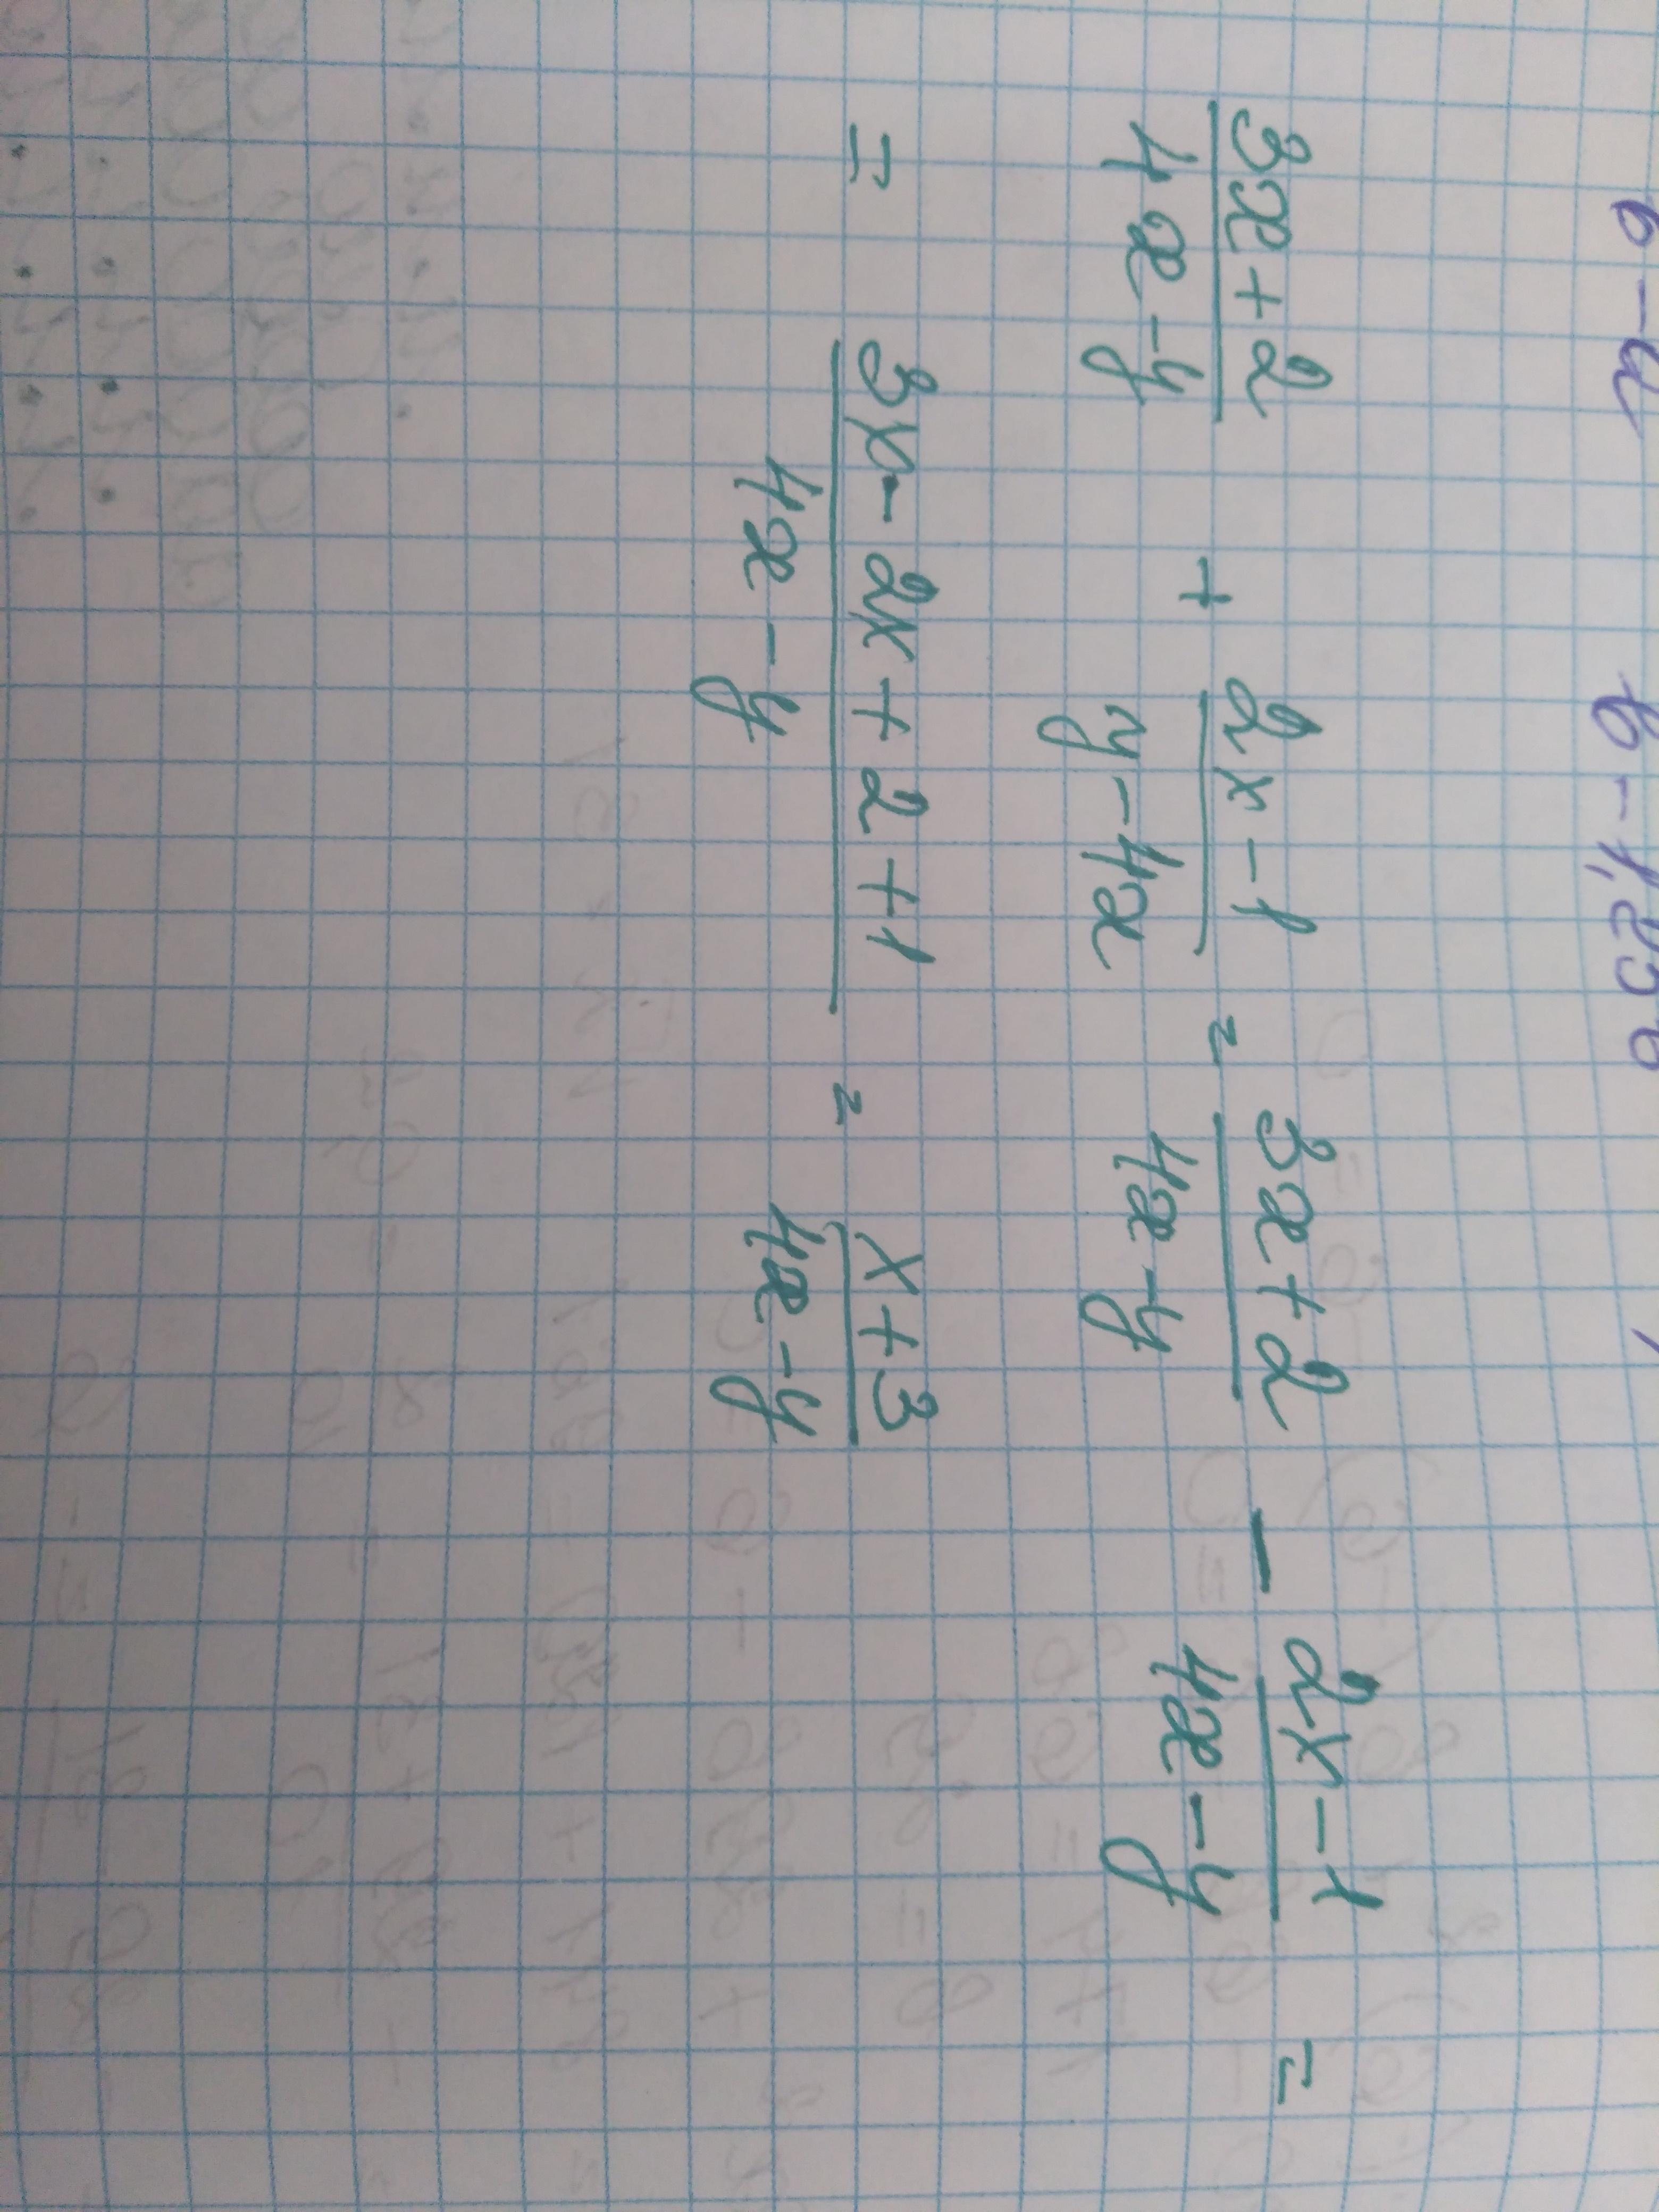 в - а в - 1,25в
3x+2/4x-y + 2x-1/y-4x = 3x+2/4x-y - 2x-1/4x-y =
= 3x-2x+2+1/4x-y = x+3/4x-y